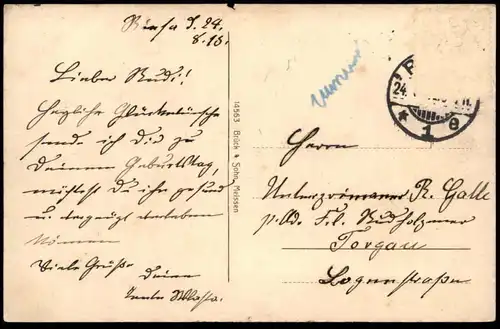 Riesa d. 24.
8.18.
Lieber Rudi!
Herzliche Glückwünsche
sende ich dir zu
Deinem Geburtstag,
möchtest du ihn gesund
u. vergnügt verleben
können
Viele Grüße
Deine
Tante Martha.
14563 Brück & Sohn, Meissen
R
24.
* 1 e
Herrn
Unterprimaner R. Galle
p. Ad. Frl.
Torgau
Logenstraße